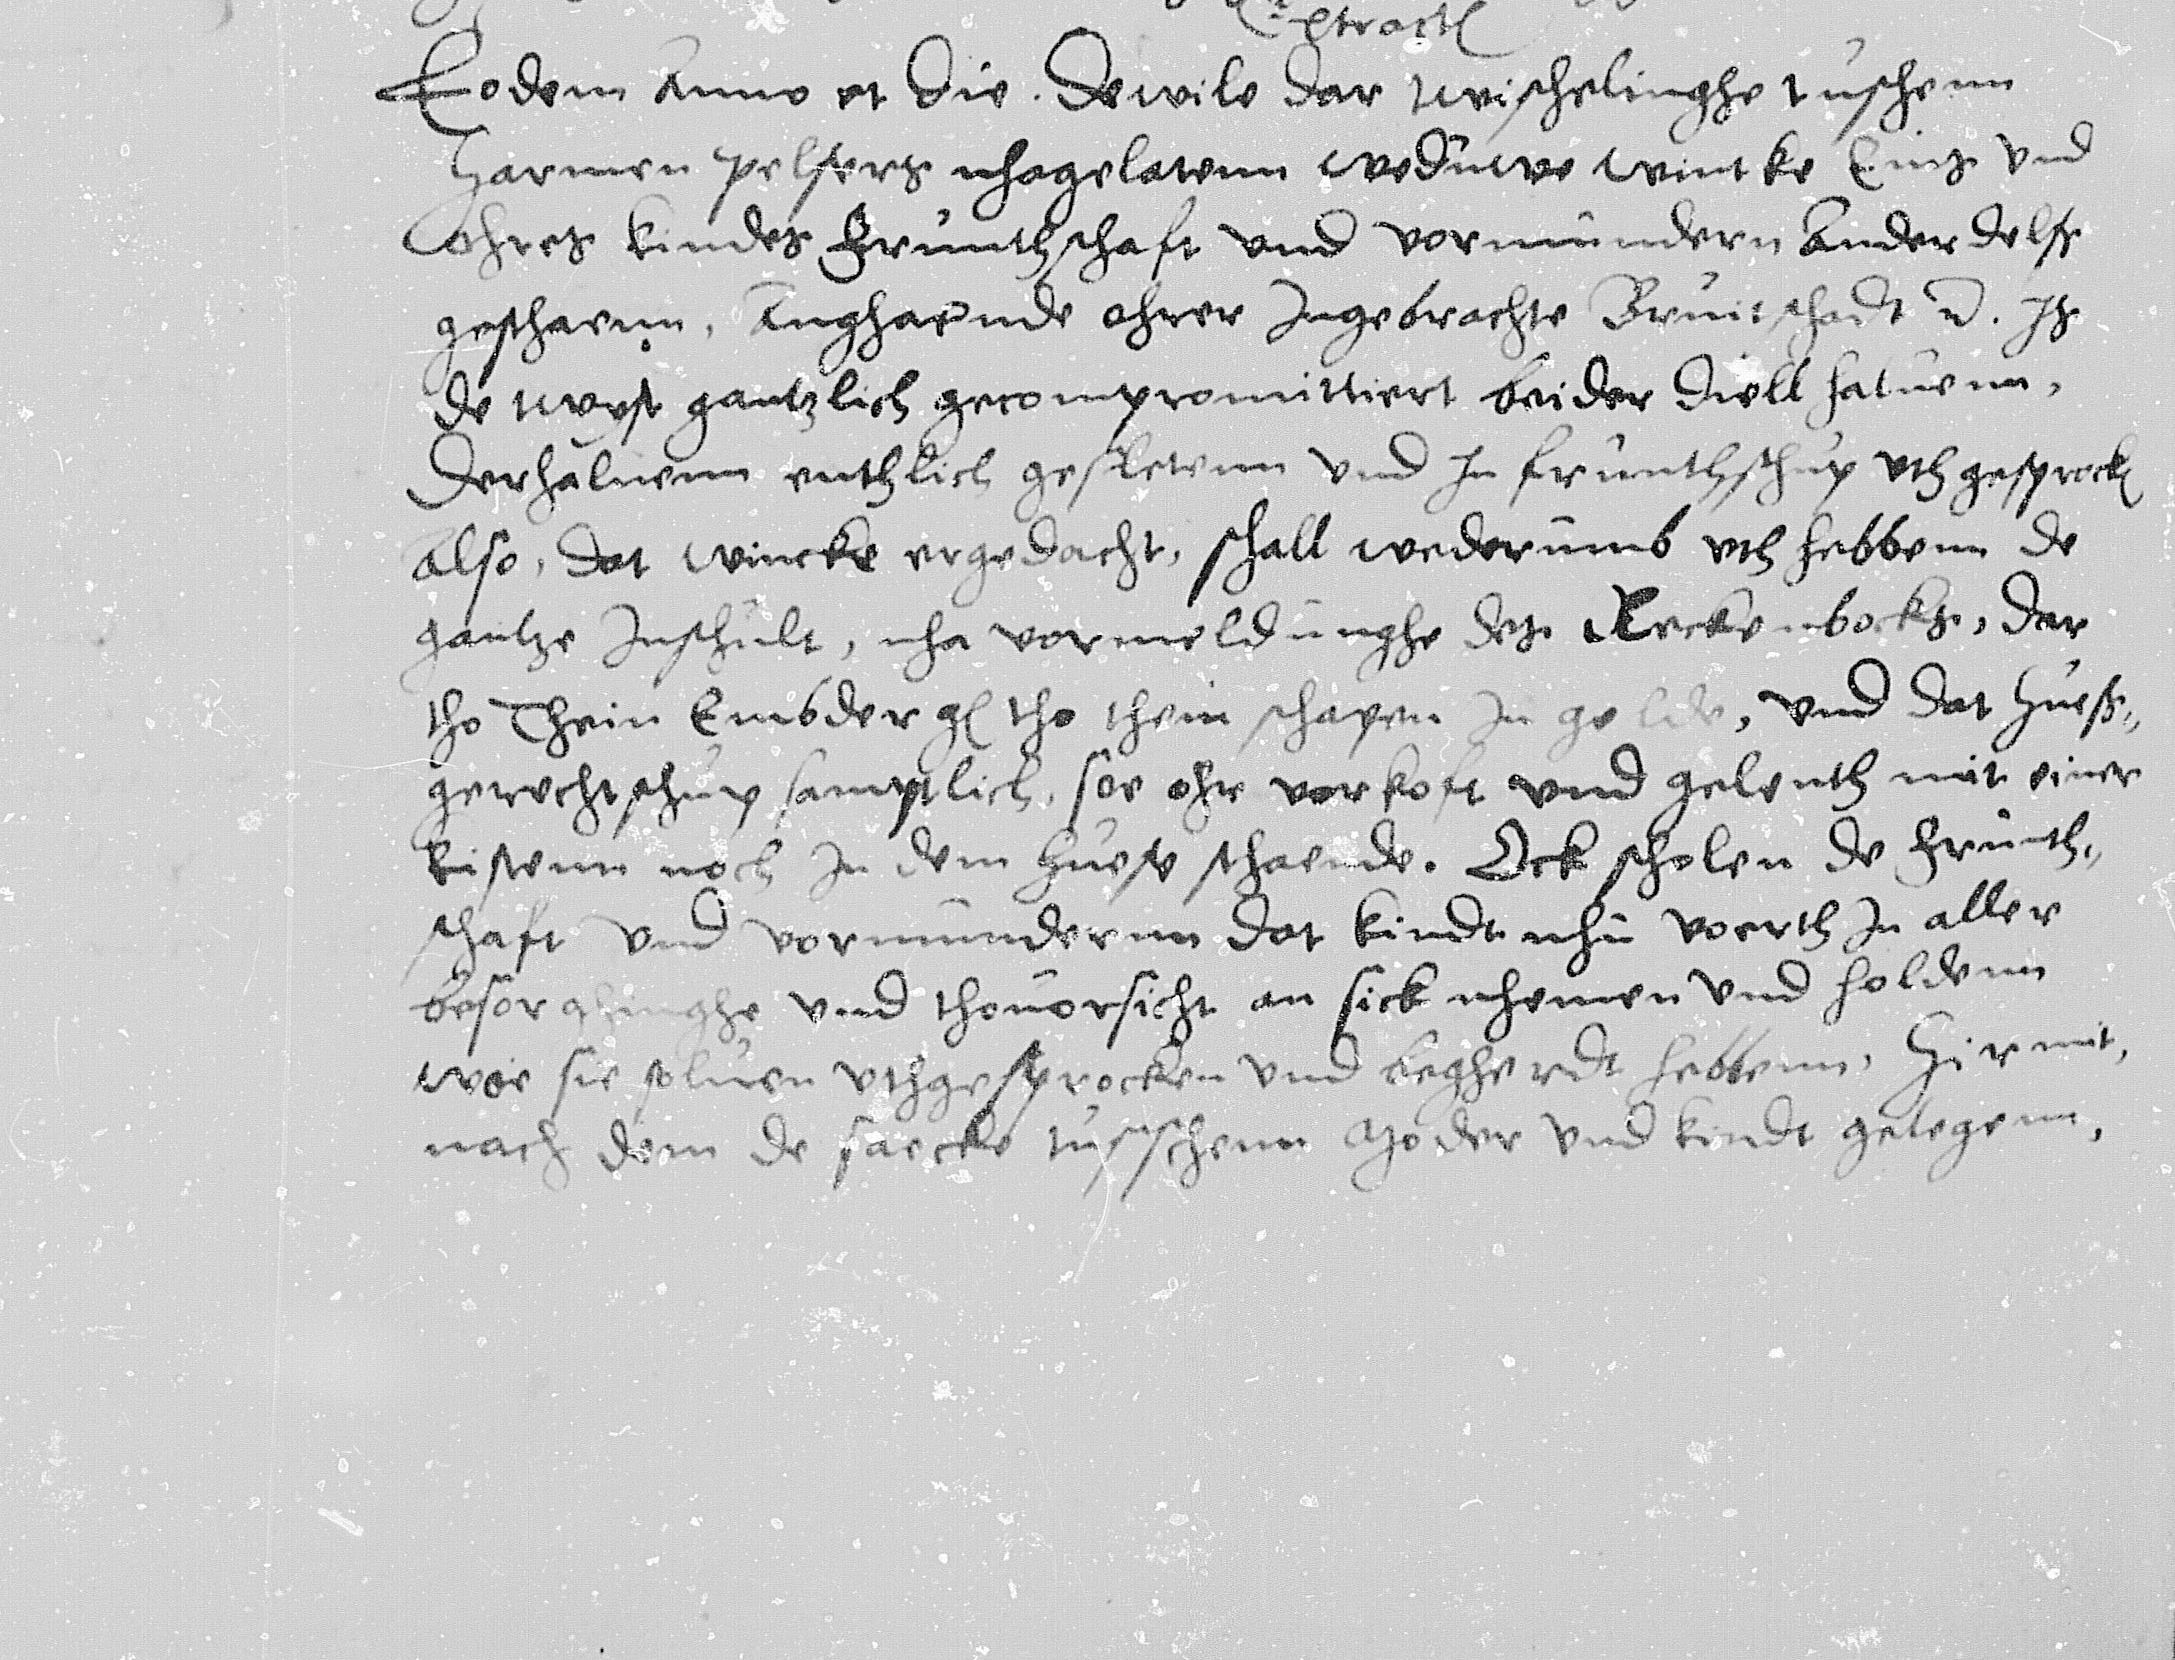 Eodem Anno et die. Dewile dar twischelinghe tuschenn
Harmen pelsers nhagelatenn weduwe wincke Eins und
ohres kindes Früntschaft und vormundern Ander dels
gesthaenn, Anghaende ohrer Ingebrachte Brutschadt. Is
de twyst gantzlich gecompromittiert beider diell haluenn,
Derhaluenn enthlich gesletenn und In frunthschup uthgesprock
also, dat wincke ergedacht, schall wederumb uth hebbenn de
gantze Inschult, nha vormeldunghe des Reckenbocks, der
tho Thein Embder gl tho thein schapen In gelde, und dat Hueß„
gerechtschup samptlich, soe ohr vorkoft und gelenth mit einer
kistenn noch In dem Huese sthaende. Ock scholen de Frunth„
schaft und vormundernn dat kindt nhu voerth In aller
besorghinghe und thouorsicht an sick nhemen und holdenn
woe sie soluen uthgesprocken und begherdt hebbenn. Hirmit,
nach dem de saecke tusschenn Moder und kindt gelegenn,